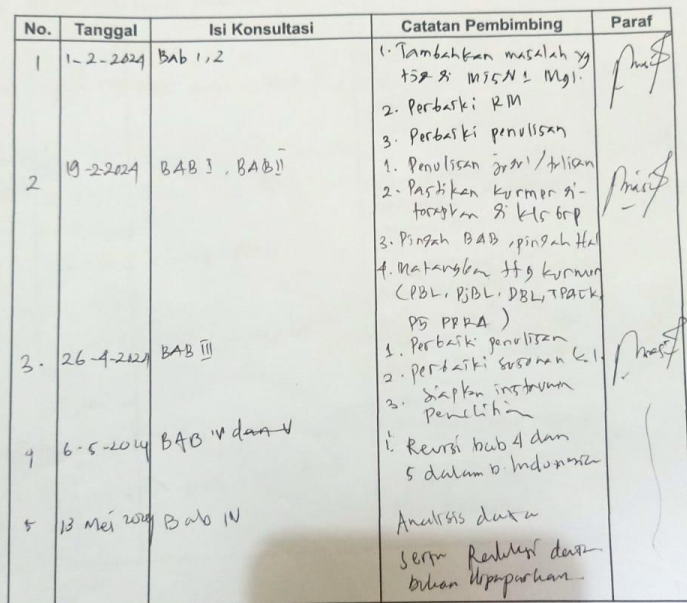 No. Tanggal Isi Konsultasi Catatan Pembimbing Paraf
1 1-2-2024 Bab 1,2 1. Tambahkan masalah yg
di MTsN 1 Mgl.
2. Perbaiki RM
3. Perbaiki penulisan
2 19-2-2024 BAB I, BAB II 1. Penulisan
2. Pastikan kurmer di-
terapkan di kls brp
3. Pindah BAB, pindah Hal
4. Matangkan ttg kurmer
(PBL, PjBL, DBL, TPACK,
P5 PPRA)
3. 26-4-2024 BAB III 1. Perbaiki penulisan
2. Perbaiki susunan
3. Siapkan instrumen
penelitian
4 6-5-2024 BAB IV dan V 1. Revisi bab 4 dan
5 dalam b. Indonesia
5 13 Mei 2024 Bab IV Analisis data
serta Reduksi data
bukan dipaparkan